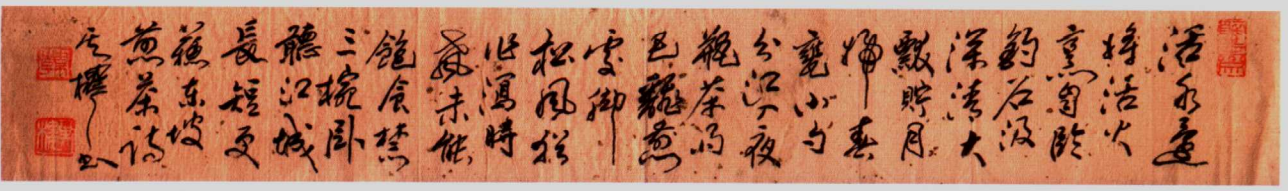 活水還
將活火
烹自臨
釣石汲
深清大
瓢貯月
歸春
甕小勺
分江入夜
瓶茶雨
已翻煎
處腳
松風猶
作瀉時
聲未能
飽食禁
三椀臥
聽江城
長短更
蘇東坡
煎茶詩
書